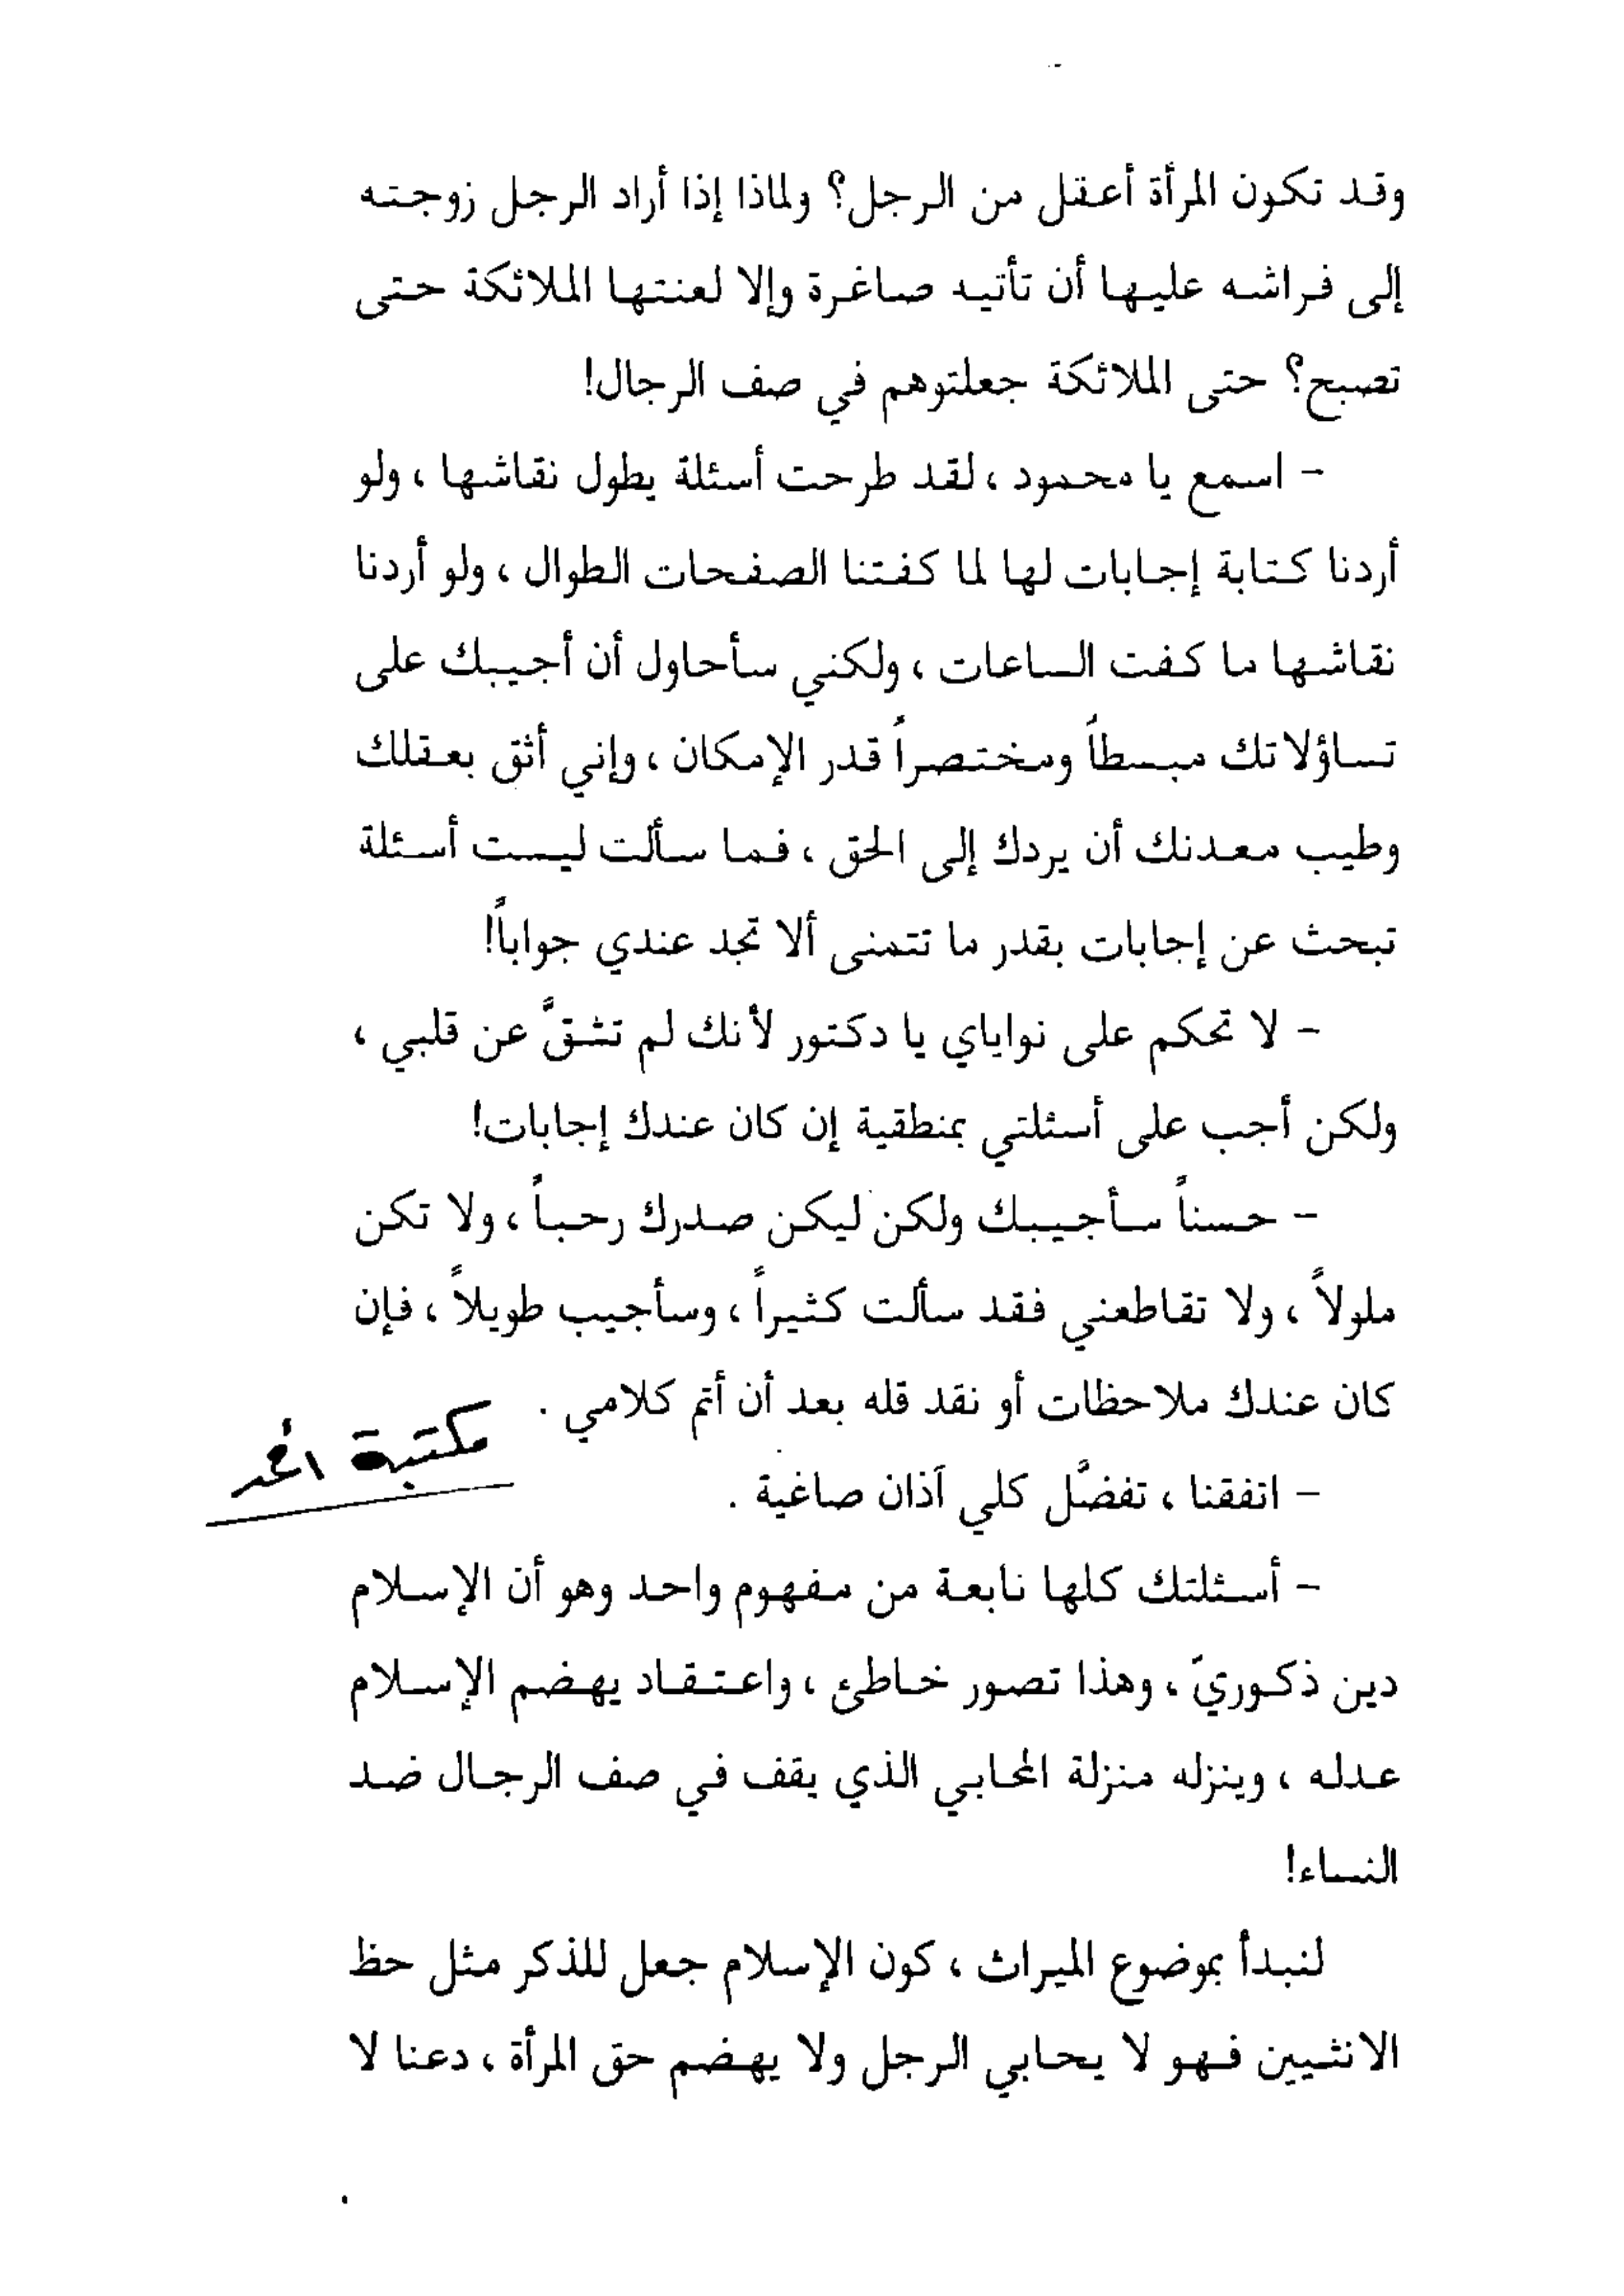 وقد تكون المرأة أعقل من الرجل؟ ولماذا إذا أراد الرجل زوجته
إلى فراشه عليها أن تأتيه صاغرة وإلا لعنتها الملائكة حتى
تصبح؟ حتى الملائكة جعلتوهم في صف الرجال!
- اسمع يا محمود ، لقد طرحت أسئلة يطول نقاشها ، ولو
أردنا كتابة إجابات لها لما كفتنا الصفحات الطوال ، ولو أردنا
نقاشها ما كفت الساعات ، ولكني سأحاول أن أجيبك على
تساؤلاتك مبسطاً ومختصراً قدر الإمكان ، وإني أثق بعقلك
وطيب معدنك أن يردك إلى الحق ، فما سألت ليست أسئلة
تبحث عن إجابات بقدر ما تتمنى ألا تجد عندي جواباً!
- لا تحكم على نواياي يا دكتور لأنك لم تشقَّ عن قلبي ،
ولكن أجب على أسئلتي بمنطقية إن كان عندك إجابات!
- حسناً سأجيبك ولكن ليكن صدرك رحباً ، ولا تكن
ملولاً ، ولا تقاطعني فقد سألت كثيراً ، وسأجيب طويلاً ، فإن
كان عندك ملاحظات أو نقد قله بعد أن أتم كلامي .
مكتبة
- اتفقنا ، تفضَّل كلي آذان صاغية .
- أسئلتك كلها نابعة من مفهوم واحد وهو أن الإسلام
دين ذكوريّ ، وهذا تصور خاطئ ، واعتقاد يهضم الإسلام
عدله ، وينزله منزلة المحابي الذي يقف في صف الرجال ضد
النساء!
لنبدأ بموضوع الميراث ، كون الإسلام جعل للذكر مثل حظ
الانثيين فهو لا يحابي الرجل ولا يهضم حق المرأة ، دعنا لا